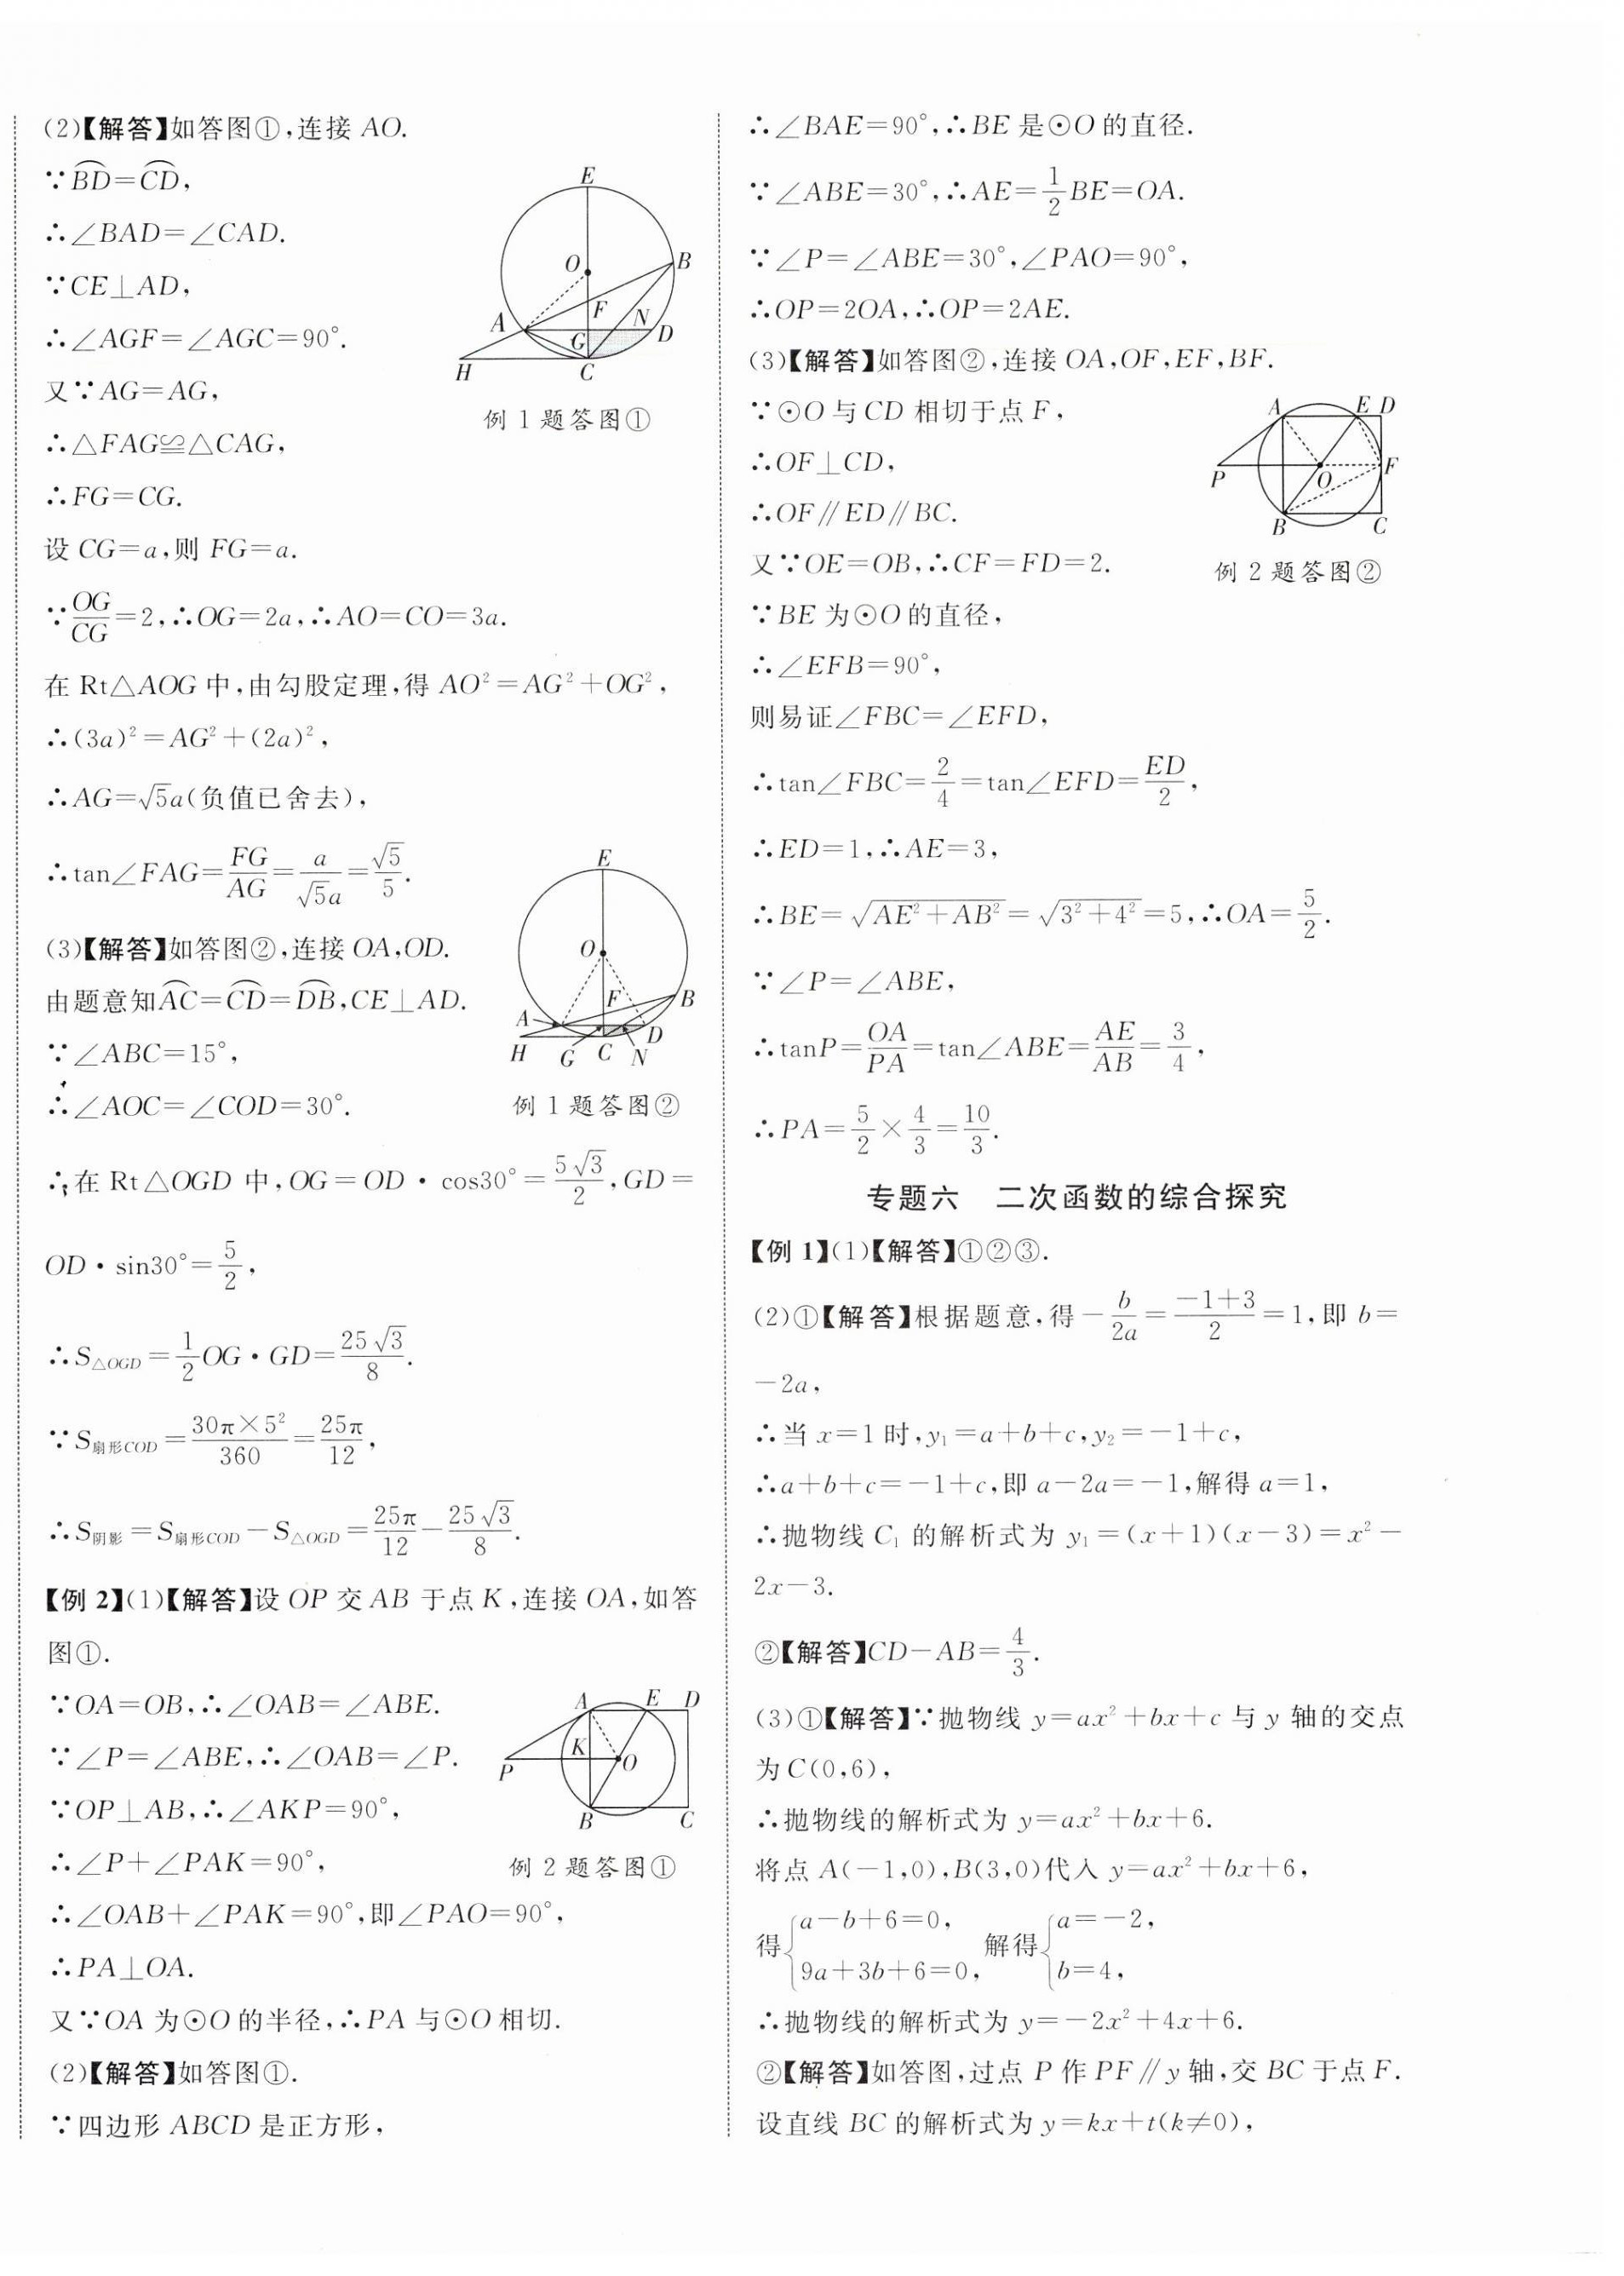 (2)【解答】如答图①,连接 AO.
∵⌒BD=⌒CD,
∴∠BAD=∠CAD.
∵CE⊥AD,
∴∠AGF=∠AGC=90°.
又∵AG=AG,
∴△FAG≌△CAG,
∴FG=CG.
设 CG=a,则 FG=a.
∵OG/CG=2,∴OG=2a,∴AO=CO=3a.
在 Rt△AOG 中,由勾股定理,得 AO²=AG²+OG²,
∴(3a)²=AG²+(2a)²,
∴AG=√5a(负值已舍去),
∴tan∠FAG=FG/AG=a/√5a=√5/5.
E
O
B
F
A
N
D
G
H
C
例 1 题答图①
(3)【解答】如答图②,连接 OA,OD.
由题意知⌒AC=⌒CD=⌒DB,CE⊥AD.
∵∠ABC=15°,
∴∠AOC=∠COD=30°.
∴在 Rt△OGD 中,OG=OD·cos30°=5√3/2,GD=
OD·sin30°=5/2,
∴S△OGD=1/2OG·GD=25√3/8.
∵S扇形COD=30π×5²/360=25π/12,
∴S阴影=S扇形COD-S△OGD=25π/12-25√3/8.
E
O
F
B
A
D
H
G
C
N
例 1 题答图②
【例 2】(1)【解答】设 OP 交 AB 于点 K,连接 OA,如答
图①.
∵OA=OB,∴∠OAB=∠ABE.
∵∠P=∠ABE,∴∠OAB=∠P.
∵OP⊥AB,∴∠AKP=90°,
∴∠P+∠PAK=90°,
∴∠OAB+∠PAK=90°,即∠PAO=90°,
∴PA⊥OA.
又∵OA 为⊙O 的半径,∴PA 与⊙O 相切.
A
E
D
K
P
O
B
C
例 2 题答图①
(2)【解答】如答图①.
∵四边形 ABCD 是正方形,
∴∠BAE=90°,∴BE 是⊙O 的直径.
∵∠ABE=30°,∴AE=1/2BE=OA.
∵∠P=∠ABE=30°,∠PAO=90°,
∴OP=2OA,∴OP=2AE.
(3)【解答】如答图②,连接 OA,OF,EF,BF.
∵⊙O 与 CD 相切于点 F,
∴OF⊥CD,
∴OF∥ED∥BC.
又∵OE=OB,∴CF=FD=2.
∵BE 为⊙O 的直径,
∴∠EFB=90°,
则易证∠FBC=∠EFD,
∴tan∠FBC=2/4=tan∠EFD=ED/2,
∴ED=1,∴AE=3,
∴BE=√(AE²+AB²)=√(3²+4²)=5,∴OA=5/2.
∵∠P=∠ABE,
∴tanP=OA/PA=tan∠ABE=AE/AB=3/4,
∴PA=5/2×4/3=10/3.
A
E
D
P
O
F
B
C
例 2 题答图②
专题六 二次函数的综合探究
【例 1】(1)【解答】①②③.
(2)①【解答】根据题意,得-b/2a=(-1+3)/2=1,即 b=
-2a,
∴当 x=1 时,y₁=a+b+c,y₂=-1+c,
∴a+b+c=-1+c,即 a-2a=-1,解得 a=1,
∴抛物线 C₁ 的解析式为 y₁=(x+1)(x-3)=x²-
2x-3.
②【解答】CD-AB=4/3.
(3)①【解答】∵抛物线 y=ax²+bx+c 与 y 轴的交点
为 C(0,6),
∴抛物线的解析式为 y=ax²+bx+6.
将点 A(-1,0),B(3,0)代入 y=ax²+bx+6,
得{a-b+6=0, 9a+3b+6=0, 解得{a=-2, b=4,
∴抛物线的解析式为 y=-2x²+4x+6.
②【解答】如答图,过点 P 作 PF∥y 轴,交 BC 于点 F.
设直线 BC 的解析式为 y=kx+t(k≠0),